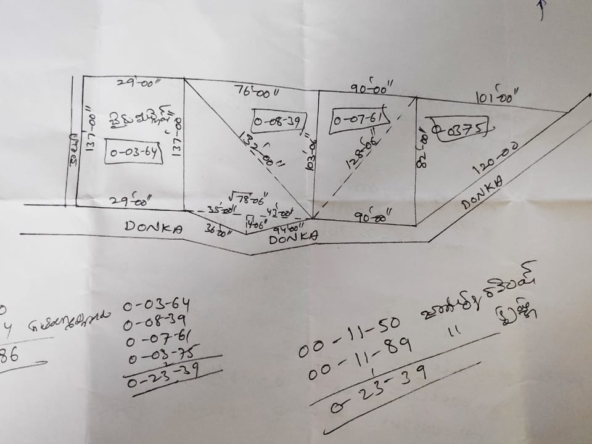 29'-00" 76'-00" 90'-00" 101'-00"
137'-00" 137'-00" 0-08-39 0-07-61 0-0375
0-03-64 132'-00" 103'-06" 128'-06" 82'-00" 120-00
29'-00" 78'-06"
35'-00" 42'-00" 90'-00" DONKA
DONKA 36'-00" 14'-06" 94'-00"
DONKA
0-03-64
0-08-39
0-07-61
0-03-75
0-23-39
86
00-11-50
00-11-89 "
0-23-39